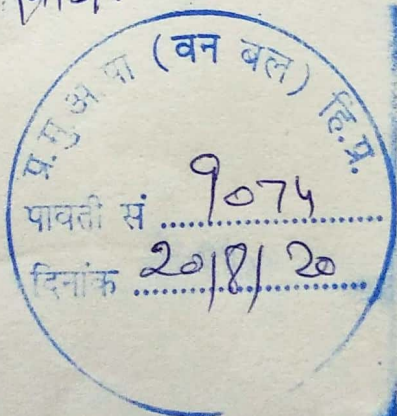 प्र.मु.अ.पा (वन बल) हि.प्र.
पावती सं ..... 9074
दिनांक ..... 20/8/20